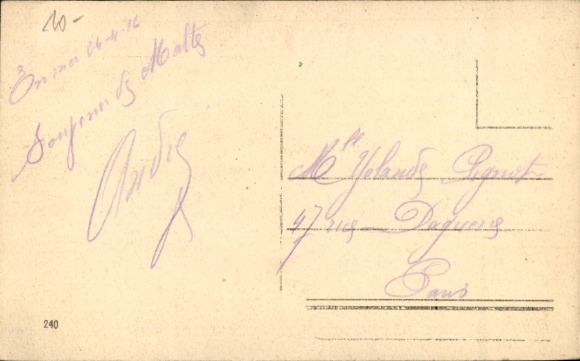 10-
En mer 24-4-16
Souvenir de Malte
André
Mlle Yolande Pignot
47 rue Daguerre
Paris
240